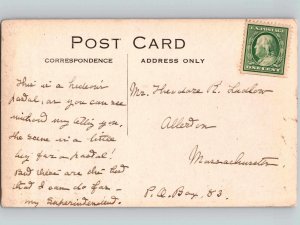 POST CARD
CORRESPONDENCE
ADDRESS ONLY
U.S. POSTAGE
ONE CENT
This is a
postal, as you can see
without my telling you.
The scene is a little
for a postal!
But there are the
that I can do for
my Superintendent.
Mr. Theodore R. Ludlow
Allerton
Massachusetts
P.O. Box, 83.